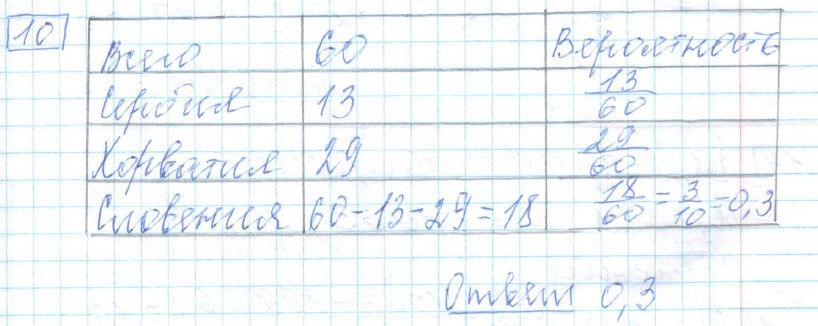 10
Всего 60 Вероятность
Сербия 13 13/60
Хорватия 29 29/60
Словения 60-13-29=18 18/60=3/10=0,3
Ответ 0,3